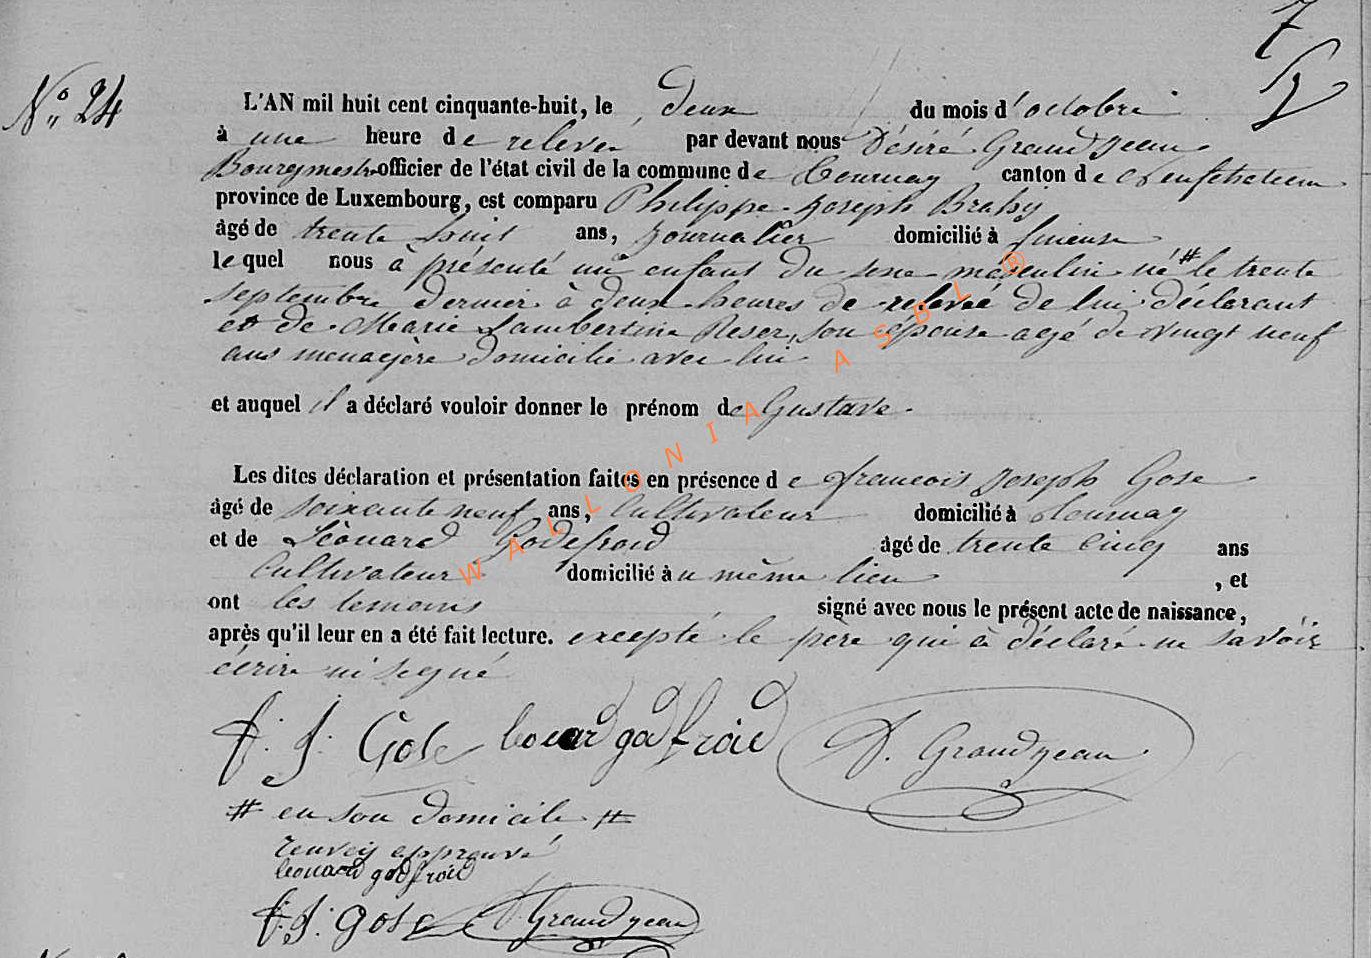 7
No 24
L'AN mil huit cent cinquante-huit, le deux du mois d'octobre
à une heure de relevée par devant nous Désiré Grandjean
Bourgmestre officier de l'état civil de la commune de Tournay canton de Neufchateau
province de Luxembourg, est comparu Philippe Joseph Brahy
âgé de trente huit ans, journalier domicilié à
lequel nous à présenté un enfant du sexe masculin né # le trente
septembre dernier à deux heures de relevée de lui déclarant
et de Marie Lambertine Reser, son épouse agé de vingt neuf
ans menagère domicilié avec lui
et auquel il a déclaré vouloir donner le prénom de Gustave.
Les dites déclaration et présentation faites en présence de francois Joseph Gose
âgé de soixante neuf ans, Cultivateur domicilié à Tournay
et de Léonard Godefroid âgé de trente cinq ans
Cultivateur domicilié au même lieu, et
ont les temoins signé avec nous le présent acte de naissance,
après qu'il leur en a été fait lecture. excepté le père qui à déclaré ne savoir
écrire ni signé
f. J. Gose leonard godfroid D. Grandjean
# en son domicile #
renvoij approuvé
leonard godfroid
f. J. gose D. Grandjean
WALLONIA ASBL ®